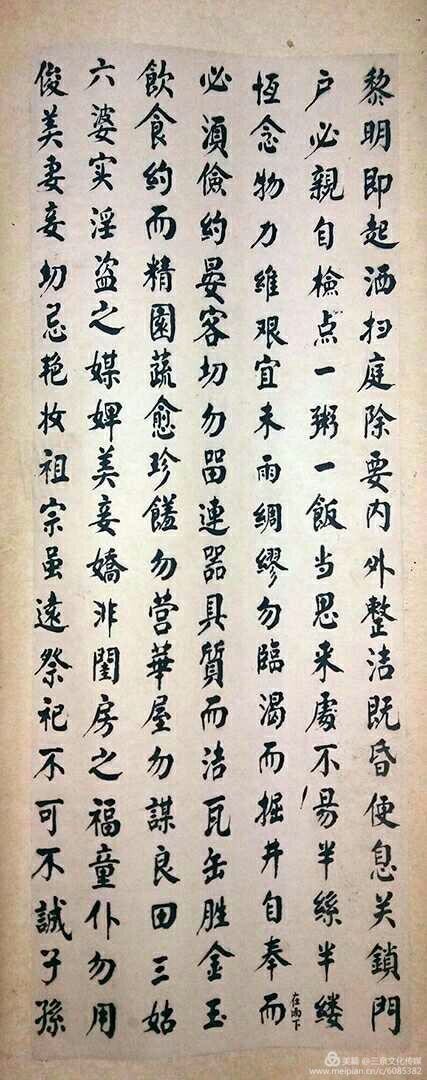 黎明即起洒扫庭除要内外整洁既昏便息关鎖門
户必親自檢点一粥一飯当思来處不易半絲半缕
恆念物力維艰宜未雨綢繆勿臨渴而掘井自奉而
必須儉約晏客切勿畱連器具質而洁瓦缶胜金玉
飲食約而精園蔬愈珍饈勿营華屋勿謀良田三姑
六婆实淫盗之媒婢美妾嬌非閨房之福童仆勿用
俊美妻妾切忌艳妝祖宗虽遠祭祀不可不誠子孫
美篇 @三京文化传媒
www.meipian.cn/c/6085382